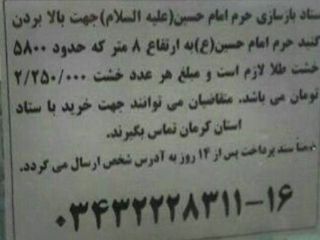 ستاد بازسازی حرم امام حسین(علیه السلام)جهت بالا بردن
گنبد حرم امام حسین(ع)به ارتفاع ۸ متر که حدود ۵۸۰۰
خشت طلا لازم است و مبلغ هر عدد خشت ۲/۲۵۰/۰۰۰
تومان می باشد. متقاضیان می توانند جهت خرید با ستاد
استان کرمان تماس بگیرند.
ضمنا سند پرداخت پس از ۱۴ روز به آدرس شخص ارسال می گردد.
۰۳۴۳۲۲۲۸۳۱۱-۱۶